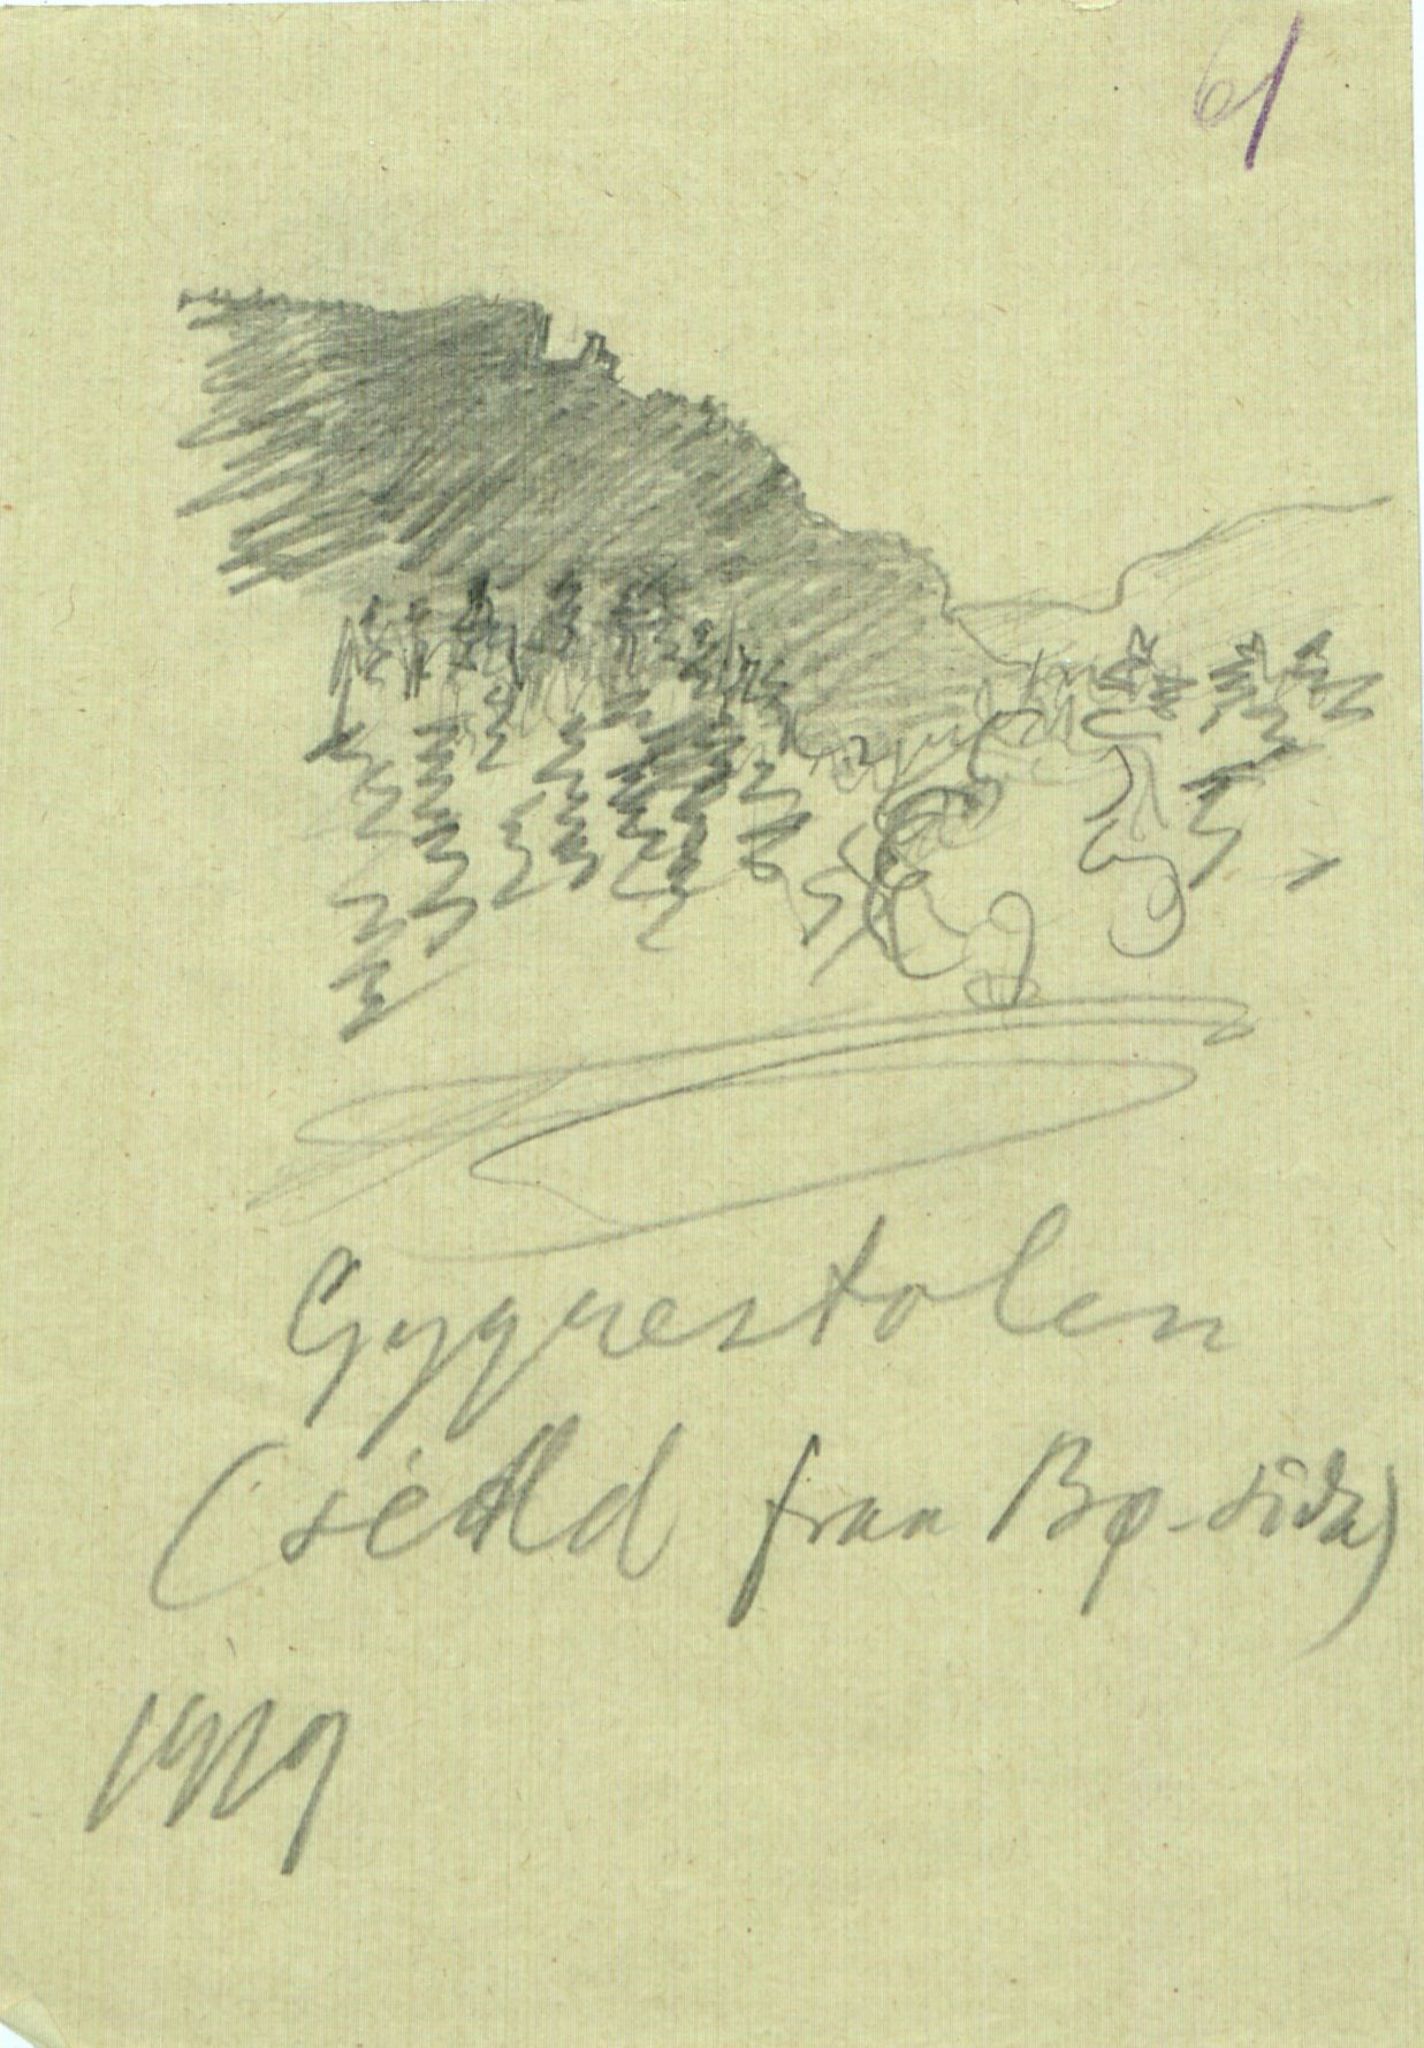 61
Gygrestolen
(sedd fraa Bø-sida)
1919